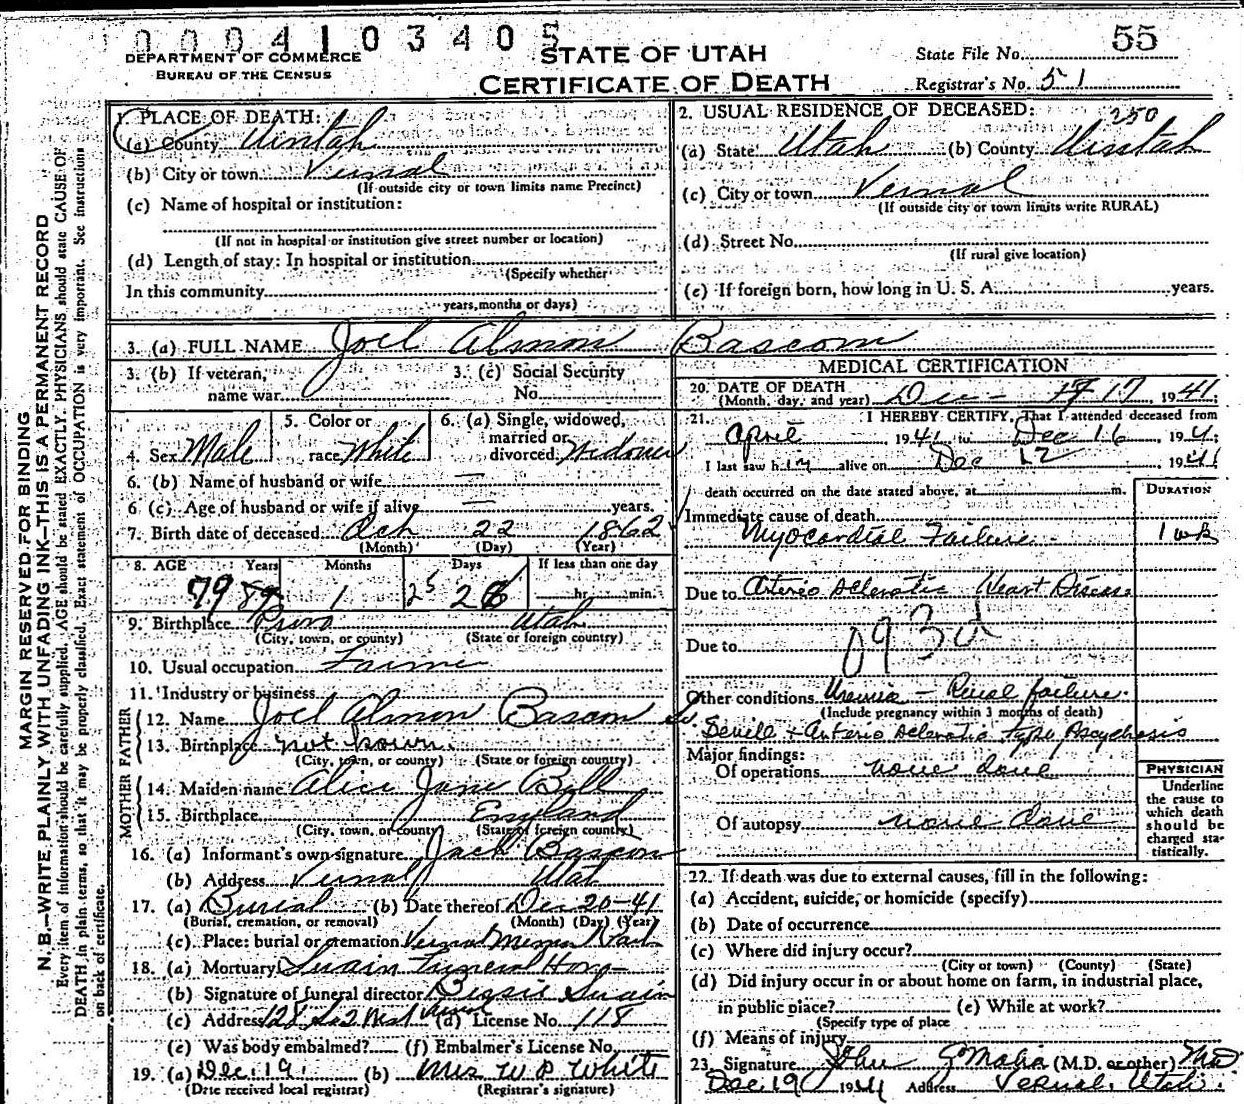 0 0 0 4 1 0 3 4 0 5
DEPARTMENT OF COMMERCE
BUREAU OF THE CENSUS
STATE OF UTAH
CERTIFICATE OF DEATH
State File No. 55
Registrar's No. 51
MARGIN RESERVED FOR BINDING
N. B.—WRITE PLAINLY WITH UNFADING INK—THIS IS A PERMANENT RECORD
Every item of information should be carefully supplied. AGE should be stated EXACTLY. PHYSICIANS should state CAUSE OF
DEATH in plain terms, so that it may be properly classified. Exact statement of OCCUPATION is very important. See instructions
on back of certificate.
1. PLACE OF DEATH:
(a) County Uintah
(b) City or town Vernal
(If outside city or town limits name Precinct)
(c) Name of hospital or institution:
(If not in hospital or institution give street number or location)
(d) Length of stay: In hospital or institution
(Specify whether
In this community
years, months or days)
2. USUAL RESIDENCE OF DECEASED:
250
(a) State Utah (b) County Uintah
(c) City or town Vernal
(If outside city or town limits write RURAL)
(d) Street No.
(If rural give location)
(e) If foreign born, how long in U. S. A. years.
3. (a) FULL NAME Joel Almon Bascom
3. (b) If veteran, name war
3. (c) Social Security No.
4. Sex Male
5. Color or race White
6. (a) Single, widowed, married or divorced Widower
6. (b) Name of husband or wife —
6 (c) Age of husband or wife if alive — years.
7. Birth date of deceased Oct 22 1862
(Month) (Day) (Year)
8. AGE Years Months Days If less than one day
79 89 1 25 26 hr. min.
9. Birthplace Provo Utah
(City, town, or county) (State or foreign country)
10. Usual occupation Farmer
11. Industry or business
FATHER
12. Name Joel Almon Bascom Sr.
13. Birthplace not known.
(City, town, or county) (State or foreign country)
MOTHER
14. Maiden name Alice Jane Bell
15. Birthplace England
(City, town, or county) (State or foreign country)
16. (a) Informant's own signature Jack Bascom
(b) Address Vernal Utah
17. (a) Burial (b) Date thereof Dec 20-41
(Burial, cremation, or removal) (Month) (Day) (Year)
(c) Place: burial or cremation Vernal Park
18. (a) Mortuary Swain Funeral Home
(b) Signature of funeral director Bessie Swain
(c) Address 128 So 2 West Vernal (d) License No. 118
(e) Was body embalmed? (f) Embalmer's License No.
19. (a) Dec. 19. (b) Mrs W P White
(Date received local registrar) (Registrar's signature)
MEDICAL CERTIFICATION
20. DATE OF DEATH
(Month, day, and year) Dec - 17 1941
21. I HEREBY CERTIFY, That I attended deceased from
April 1941 to Dec 16, 194
I last saw h alive on Dec 17 1941
death occurred on the date stated above, at m.
DURATION
Immediate cause of death
Myocardial Failure - 1 wk
Due to Arterio Sclerotic Heart Disease
093d
Due to
Other conditions Uremia - Renal failure.
(Include pregnancy within 3 months of death)
Senile + Arterio Sclerotic type Psychosis
Major findings:
Of operations none done
Of autopsy none done
PHYSICIAN
Underline
the cause to
which death
should be
charged sta-
tistically.
22. If death was due to external causes, fill in the following:
(a) Accident, suicide, or homicide (specify)
(b) Date of occurrence
(c) Where did injury occur?
(City or town) (County) (State)
(d) Did injury occur in or about home on farm, in industrial place,
in public place? (e) While at work?
(Specify type of place
(f) Means of injury
23. Signature John (M.D. or other) MD
Dec 19 1941 Address Vernal, Utah.